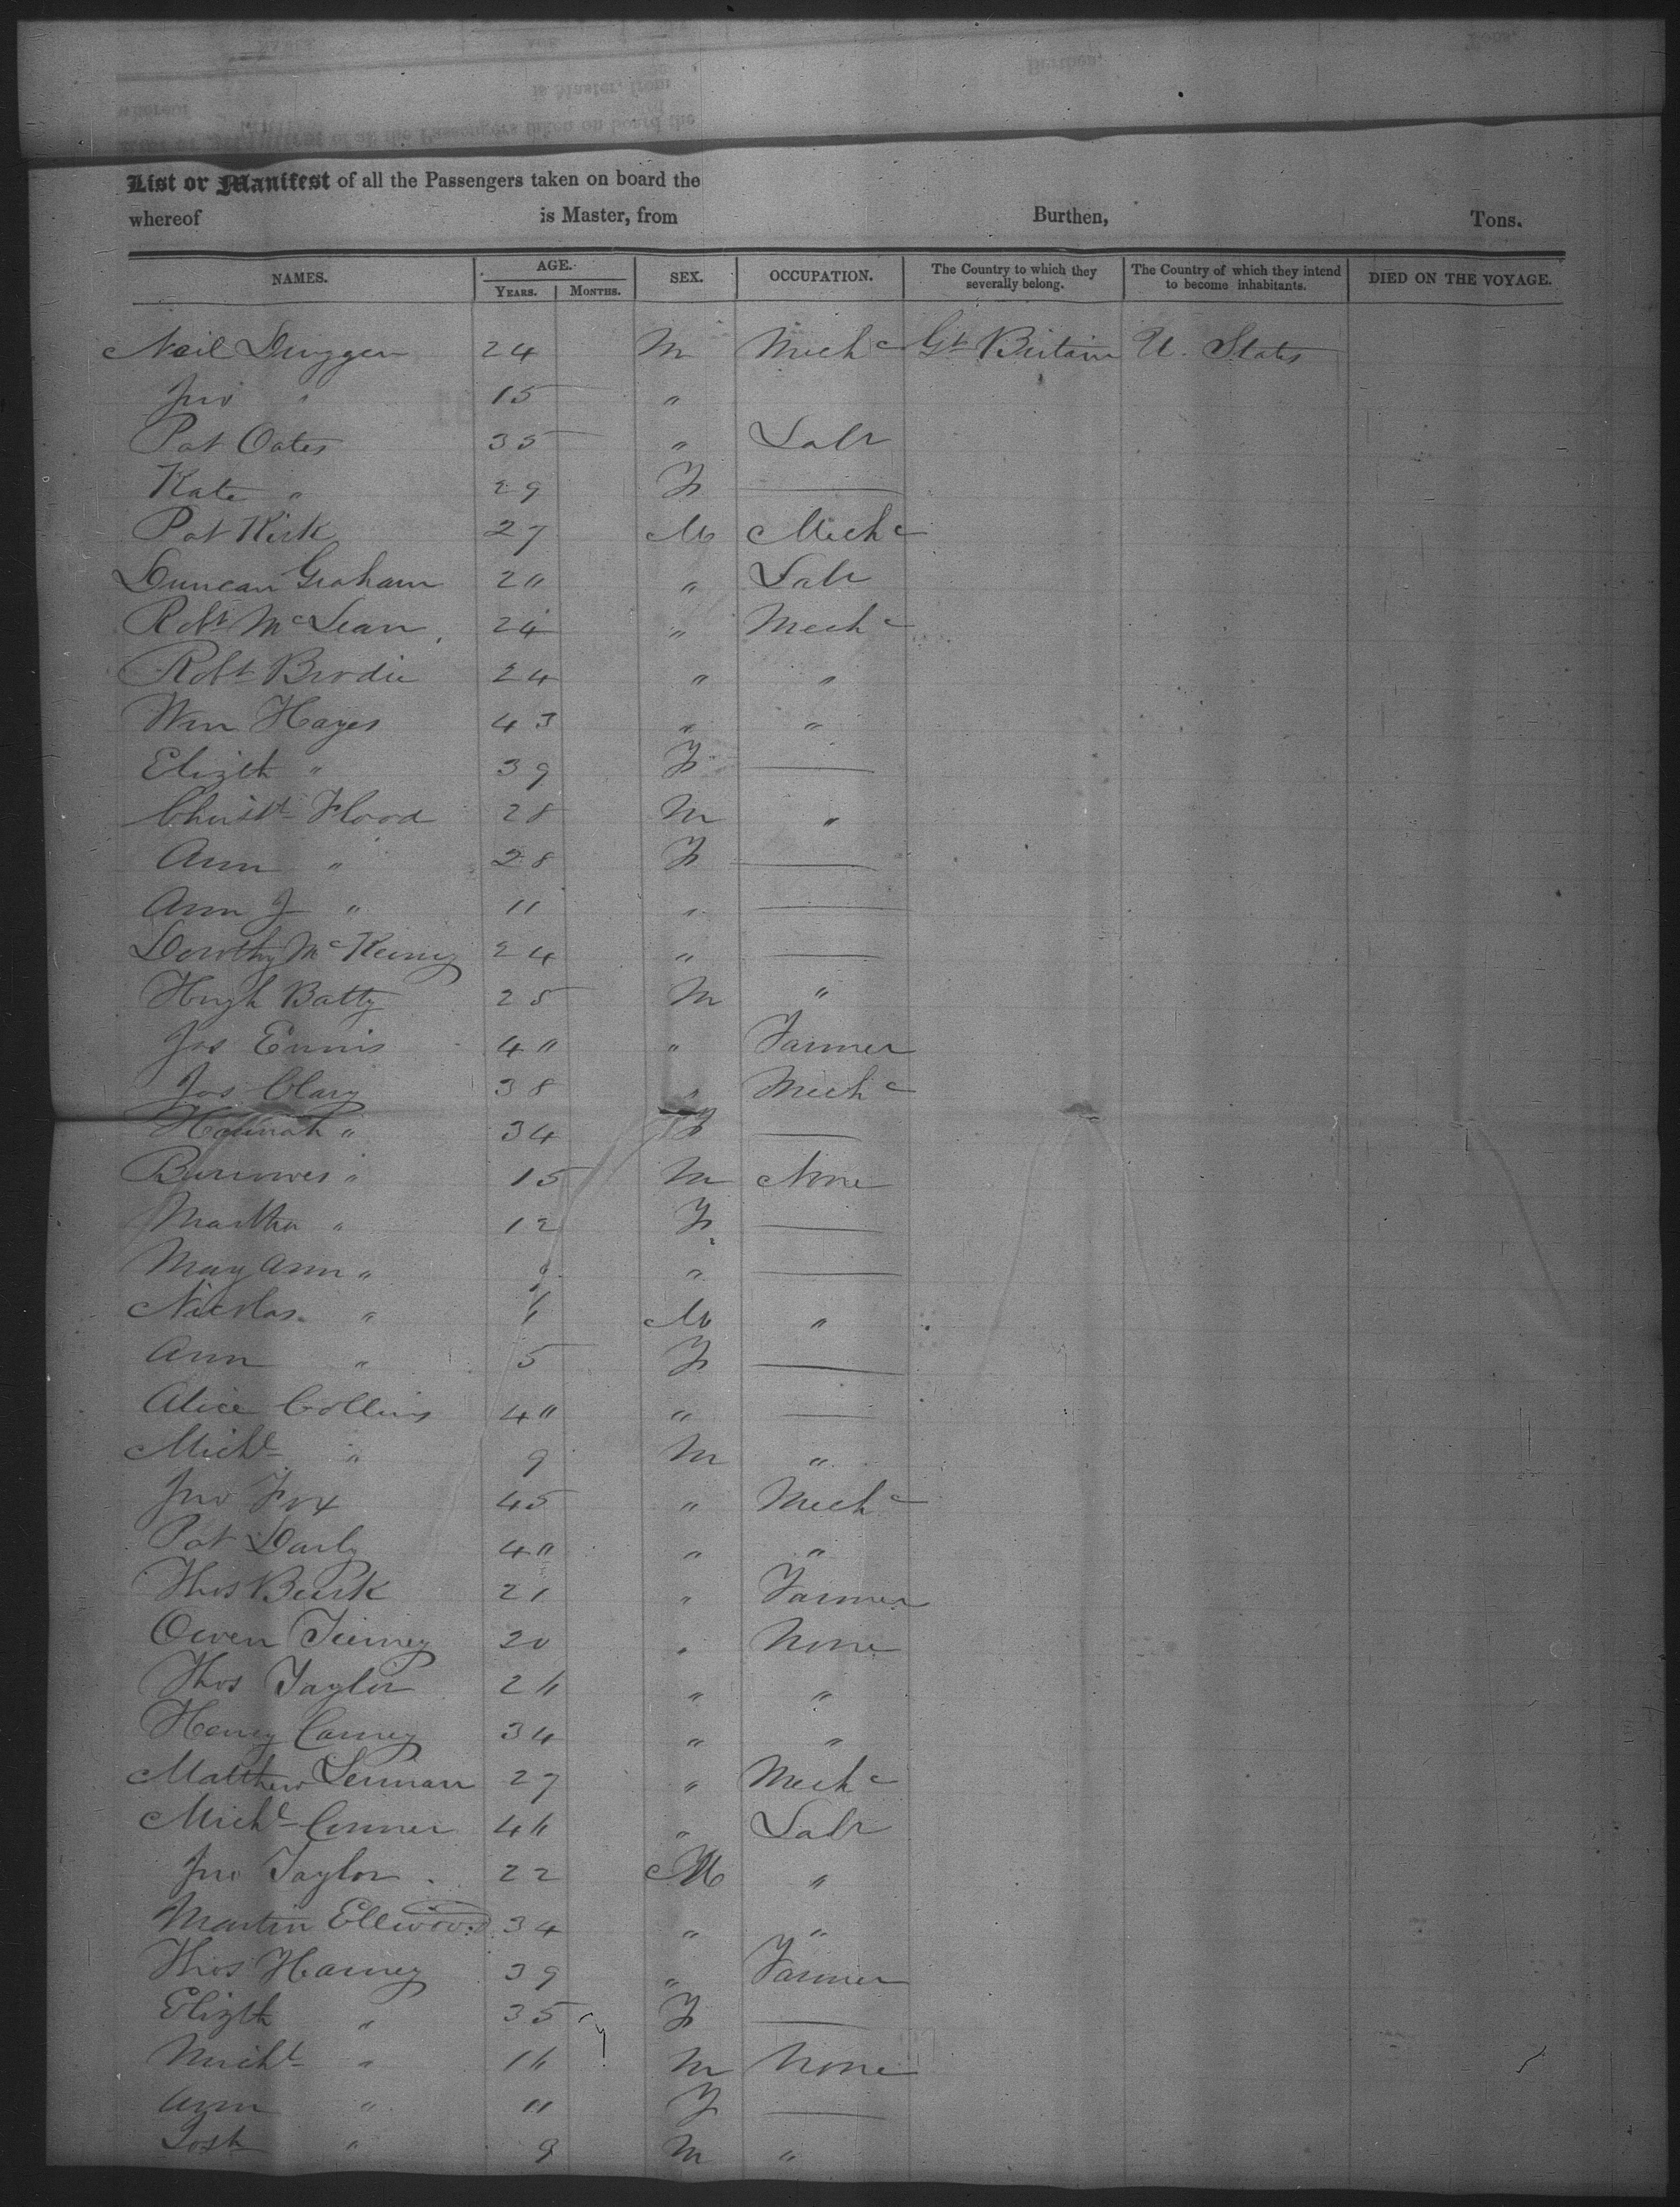 List or Manifest of all the Passengers taken on board the
whereof is Master, from Burthen, Tons.
NAMES. AGE. SEX. OCCUPATION. The Country to which they severally belong. The Country of which they intend to become inhabitants. DIED ON THE VOYAGE.
YEARS. MONTHS.
Neil Duggan 24 M Mechc Gt Britain U. States
Jno " 15 "
Pat Oates 35 " Labr
Kate " 29 F —
Pat Kirk 27 M Mechc
Duncan Graham 2" " Labr
Robt McLean 24 " Mechc
Robt Brodie 24 " "
Wm Hayes 43 " "
Elizth " 39 F —
Christr Flood 28 M "
Ann " 28 F —
Ann J " 11 " —
Dorothy McKenny 24 " —
Hugh Batty 25 M "
Jas Ennis 4" " Farmer
Jas Clary 38 " Mechc
Hannah " 34 F —
Burrowes " 15 M None
Martha " 12 F —
Mary Ann " 9 " —
Nicolas " M "
Ann " 5 F —
Alice Collins 4" " —
Michl " 9 M "
Jno Fox 45 " Mechc
Pat Darly 4" " "
Thos Burk 21 " Farmer
Owen Tierney 20 " None
Thos Taylor 26 " "
Henry Carney 34 " "
Matthew Lennan 27 " Mechc
Michl Conner 46 " Labr
Jno Taylor 22 M "
Martin Ellwood 34 " "
Thos Harney 39 " Farmer
Elizth " 35 F —
Michl " 16 M None
Ann " 11 F —
" 9 M "